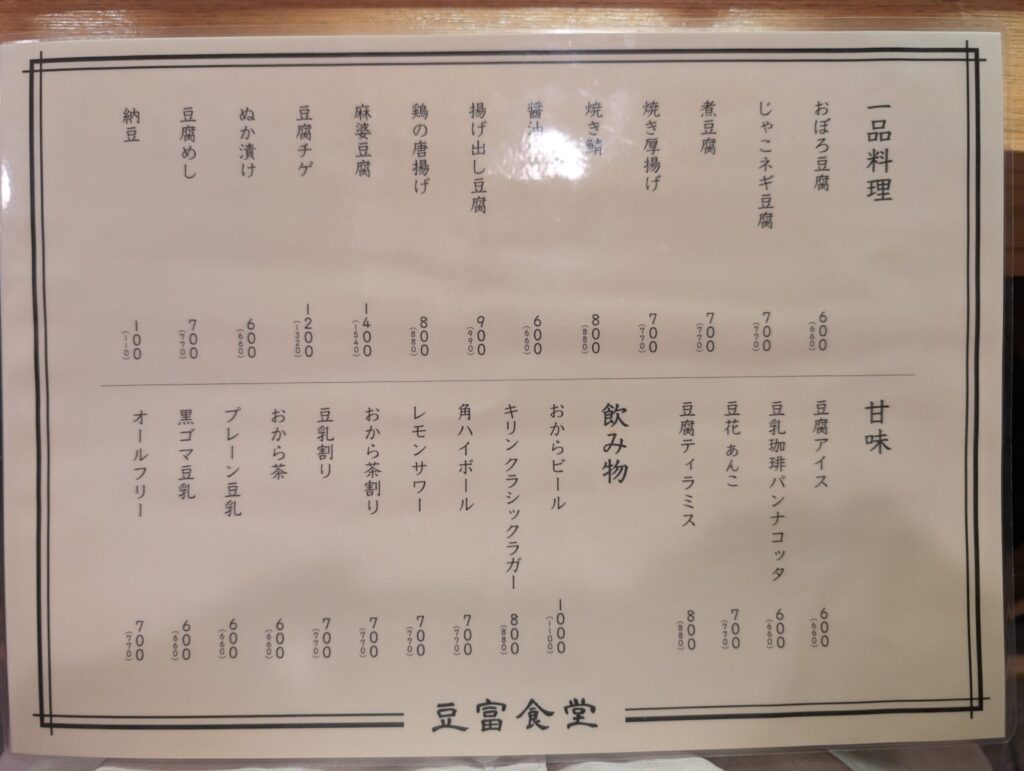 一品料理
おぼろ豆腐 600(660)
じゃこネギ豆腐 700(770)
煮豆腐 700(770)
焼き厚揚げ 700(770)
焼き鯖 800(880)
醤油 600(660)
揚げ出し豆腐 900(990)
鶏の唐揚げ 800(880)
麻婆豆腐 1400(1540)
豆腐チゲ 1200(1320)
ぬか漬け 600(660)
豆腐めし 700(770)
納豆 100(110)
甘味
豆腐アイス 600(660)
豆乳珈琲パンナコッタ 600(660)
豆花 あんこ 700(770)
豆腐ティラミス 800(880)
飲み物
おからビール 1000(1100)
キリンクラシックラガー 800(880)
角ハイボール 700(770)
レモンサワー 700(770)
おから茶割り 700(770)
豆乳割り 700(770)
おから茶 600(660)
プレーン豆乳 600(660)
黒ゴマ豆乳 600(660)
オールフリー 700(770)
豆富食堂